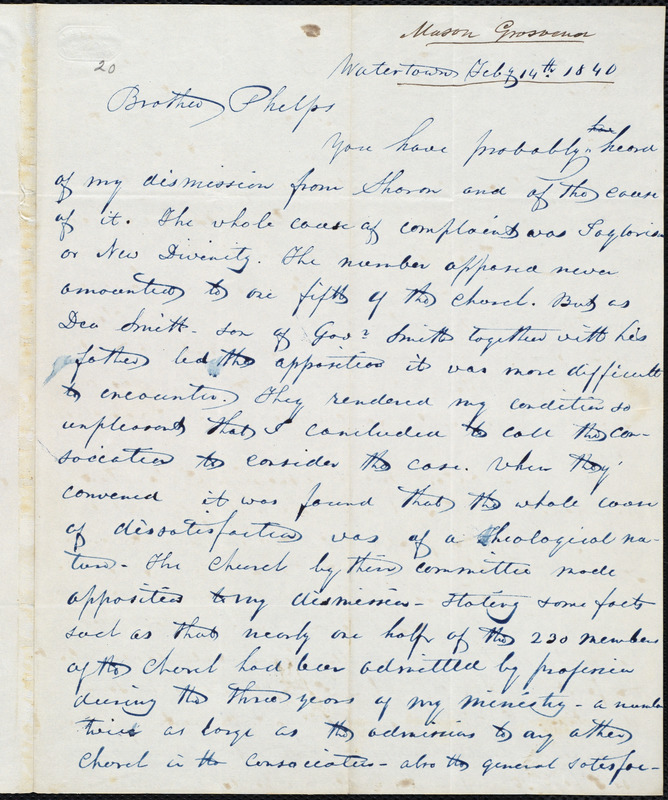 Mason Grosvenor
20
Watertown Feby 14th 1840
Brother Phelps
have
You have probably heard
of my dismission from Sharon and of the cause
of it. The whole cause of complaint was Taylorism
or New Divinity. The number opposed never
amounted to one fifth of the church. But as
Dea Smith - son of Gov. Smith together with his
father led the opposition it was more difficult
to encounter. They rendered my condition so
unpleasant that I concluded to call the con-
sociation to consider the case. When they
convened it was found that the whole cause
of dissatisfaction was of a theological na-
ture - The Church by their committee made
opposition to my dismission - stating some facts
such as that nearly one half of the 230 members
of the Church had been admitted by profession
during the three years of my ministry - a number
twice as large as the admissions to any other
Church in the consociation - also the general satisfac-